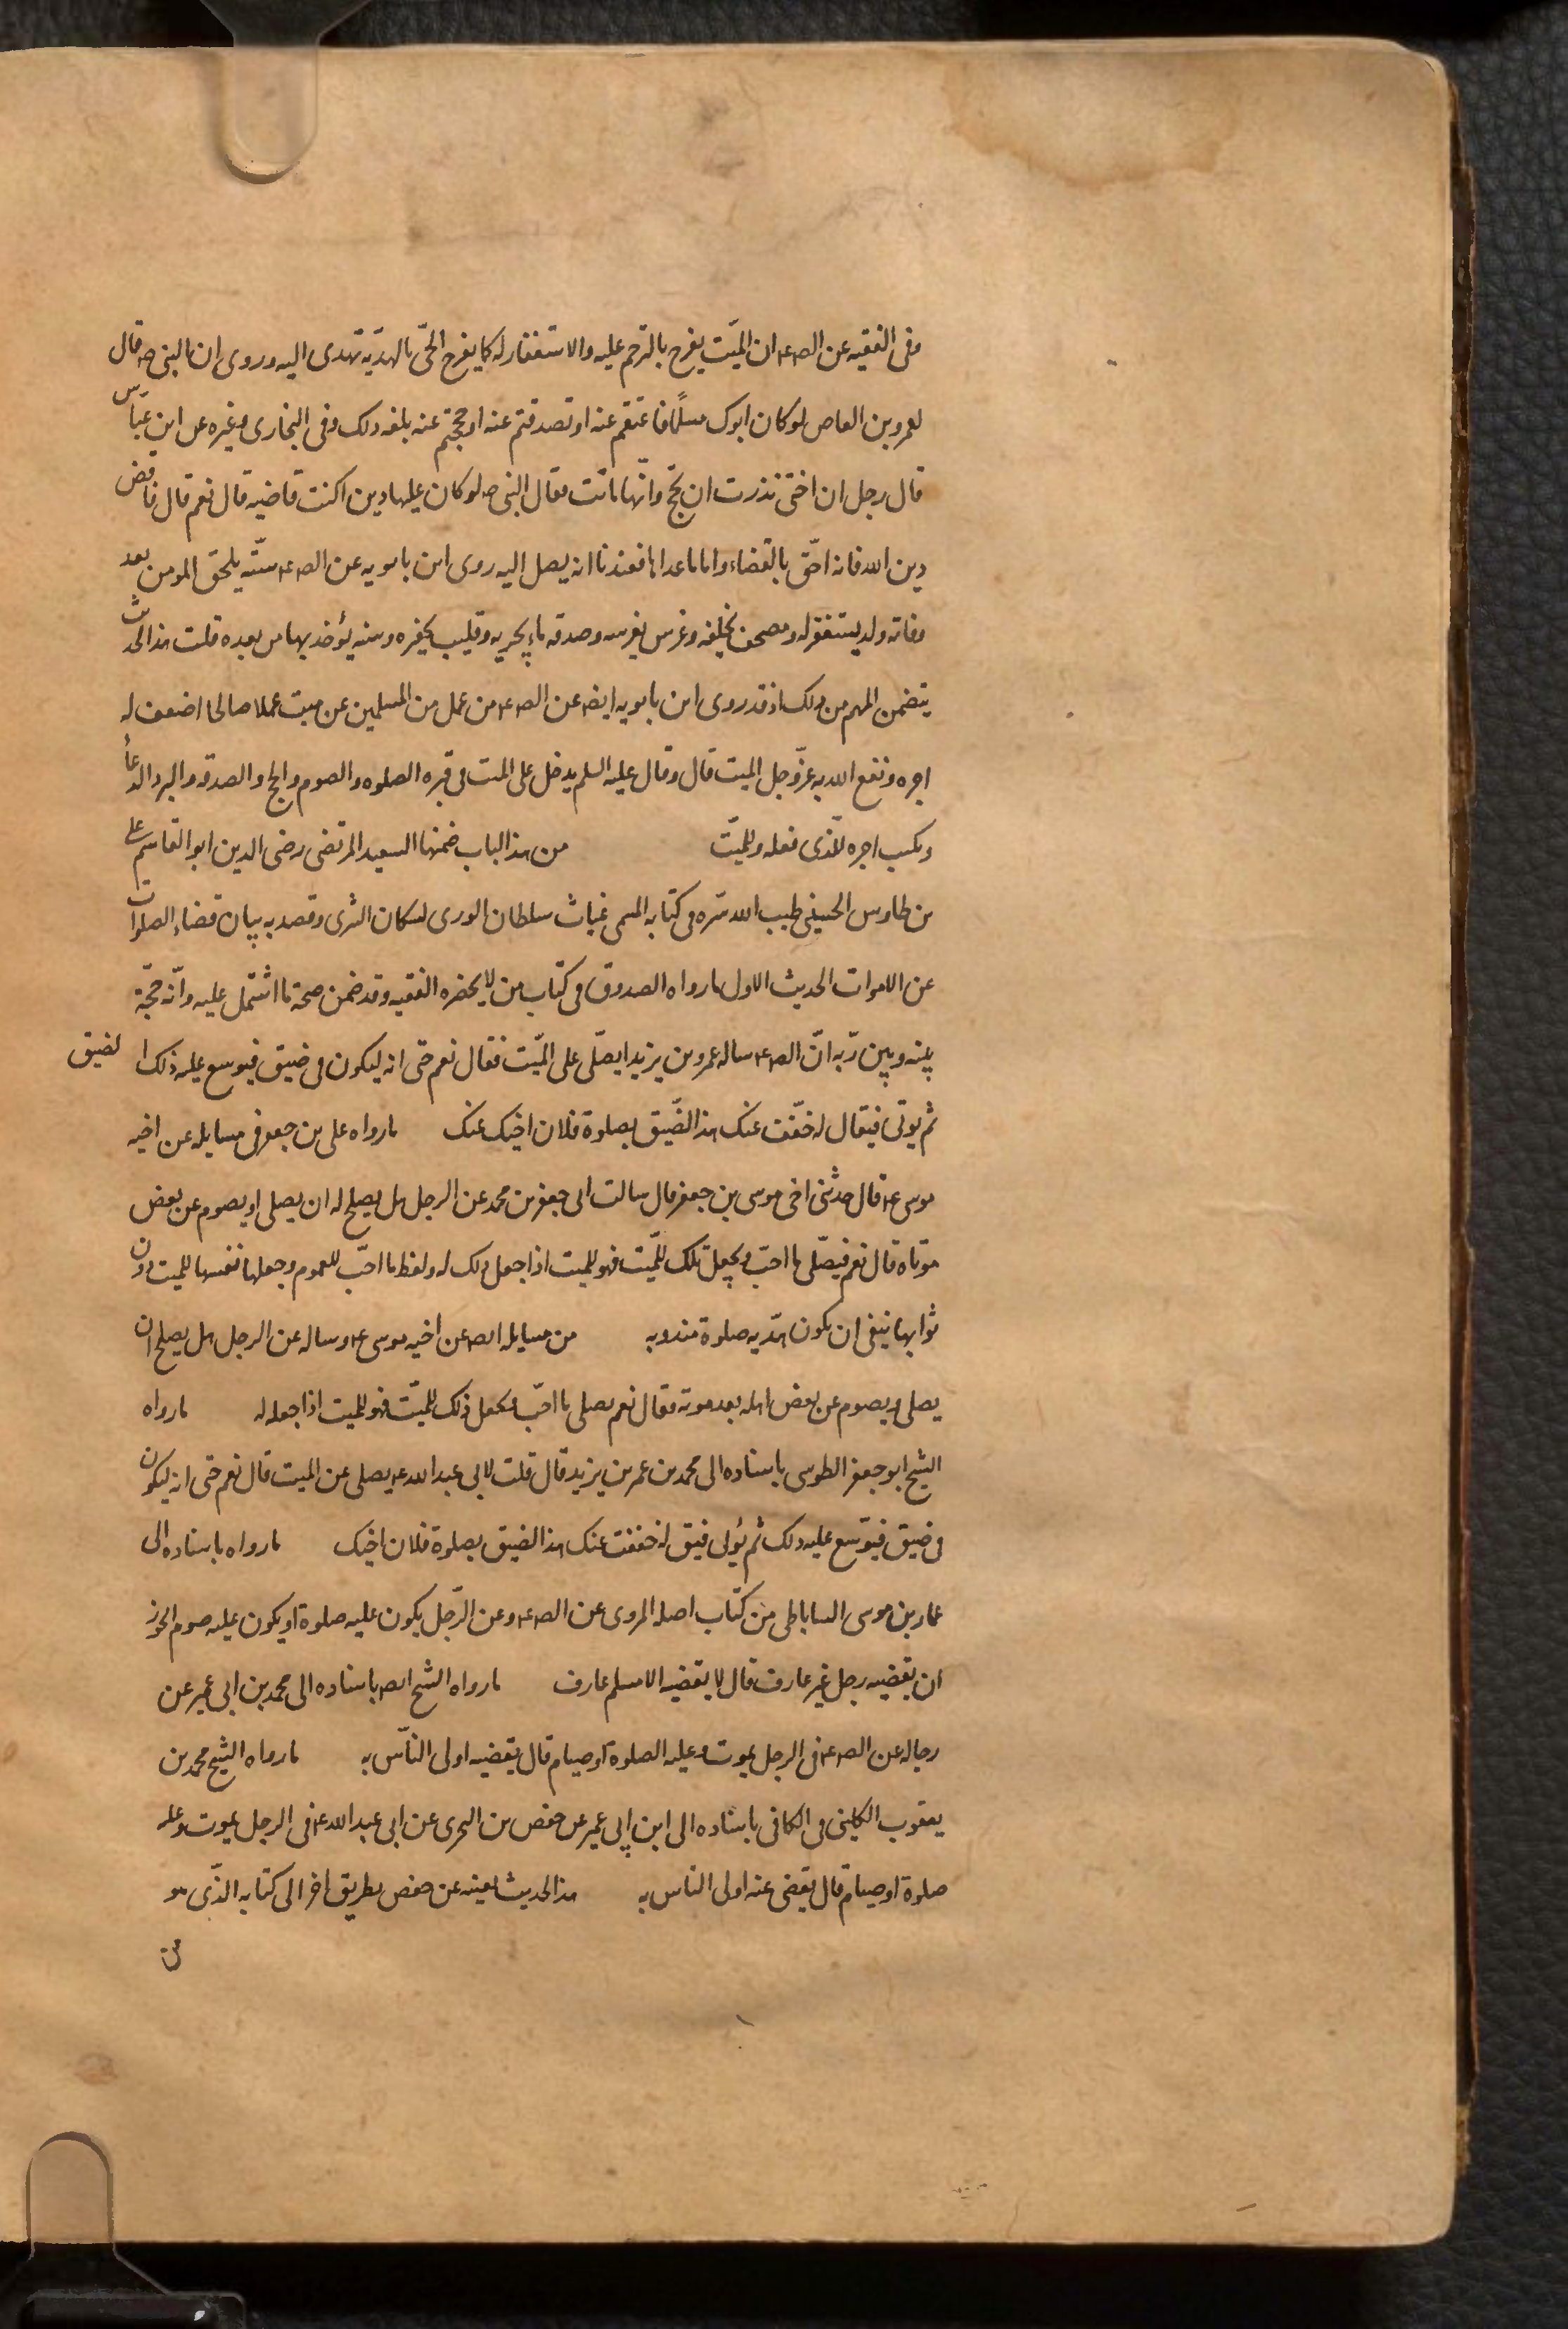 وفى الفقيه عن الص ع ان الميّت يفرح بالترحم عليه والاستغفار له كما يفرح الحّى بالهديّة تهدى اليه وروى ان النبى ص قال
لعمرو بن العاص لو كان ابوك مسلمًا فاعتقتم عنه او تصدقتم عنه او حججتم عنه بلغه ذلك وفى البخارى وغيره عن ابن عبّاس
قال رجل ان اختى نذرت ان تحج وانّها ماتت فقال النبى ص لو كان عليها دين اكنت قاضيه قال نعم قال فاقض
دين الله فانه احقّ بالقضاء واما ما عداها فعندنا انه يصل اليه روى ابن بابويه عن الص ع ستّه يلحق المومن بعد
وفاته ولد يستغفر له ومصحف يخلفه وغرس يغرسه وصدقه ماء يجريه وقليب يحفره وسنه يؤخذ بها من بعده قلت هذا الحديث
يتضمن المهم من ذلك اذ قد روى ابن بابويه ايضا عن الص ع من عمل من المسلمين عن ميت عملا صالحا اضعف له
اجره ونفع الله به عزّوجل الميت قال وقال عليه السلم يدخل على الميت فى قبره الصلوه والصوم والحج والصدقه والبر والدعاء
ويكتب اجره للّذى فعله وللميّت من هذا الباب ضمنها السعيد المرتضى رضى الدين ابو القاسم على
بن طاوس الحسينى طيب الله سرّه فى كتابه المسمى غياث سلطان الورى لسكان الثرى وقصد به بيان قضاء الصلوات
عن الاموات الحديث الاول ما رواه الصدوق فى كتاب من لا يحضره الفقيه وقد ضمن صحة ما اشتمل عليه وانّه حجّة
بينه وبين ربّه انّ الص ع ساله عمر بن يزيد ايصلّى على الميّت فقال نعم حتى انه ليكون فى ضيق فيوسع عليه ذلك الضيق
ثم يوتى فيقال له خفّف عنك هذا الضّيق بصلوة فلان اخيك عنك ما رواه على بن جعفر فى مسايله عن اخيه
موسى ع قال حدثنى اخى موسى بن جعفر قال سالت ابى جعفر بن محمد عن الرجل هل يصلح له ان يصلى او يصوم عن بعض
موتاه قال نعم فيصلّى ما احبّ ويجعل تلك للميّت فهو للميت اذا جعل ذلك له ولفظ ما احبّ للعموم وجعلها نفسها للميت دون
ثوابها ينفى ان يكون هديه صلوة مندوبه من مسايله ايضا عن اخيه موسى ع وساله عن الرجل هل يصلح ان
يصلى ويصوم عن بعض اهله بعد موته فقال نعم يصلى ما احبّ ويجعل ذلك للميّت فهو للميت اذا جعله له ما رواه
الشيخ ابو جعفر الطوسى باسناده الى محمد بن عمر بن يزيد قال قلت لابى عبد الله ع يصلى عن الميت قال نعم حتى انه ليكون
فى ضيق فيوّسع عليه ذلك ثم يؤتى فيق له خفف عنك هذا الضيق بصلوة فلان اخيك ما رواه باسناده الى
عمار بن موسى الساباطى من كتاب اصله المروى عن الص ع وعن الرّجل يكون عليه صلوة او يكون عليه صوم ايجوز
ان يقضيه رجل غير عارف قال لا يقضيه الا مسلم عارف ما رواه الشيخ ايضا باسناده الى محمد بن ابى عمير عن
رجاله عن الص ع فى الرجل يموت وعليه الصلوة او صيام قال يقضيه اولى النّاس به ما رواه الشيخ محمد بن
يعقوب الكلينى فى الكافى باسناده الى ابن ابى عمير عن حفص بن البخترى عن ابى عبد الله ع فى الرجل يموت وعليه
صلوة او صيام قال يقضى عنه اولى الناس به هذا الحديث بعينه عن حفص بطريق اخر الى كتابه الّذى هو
من